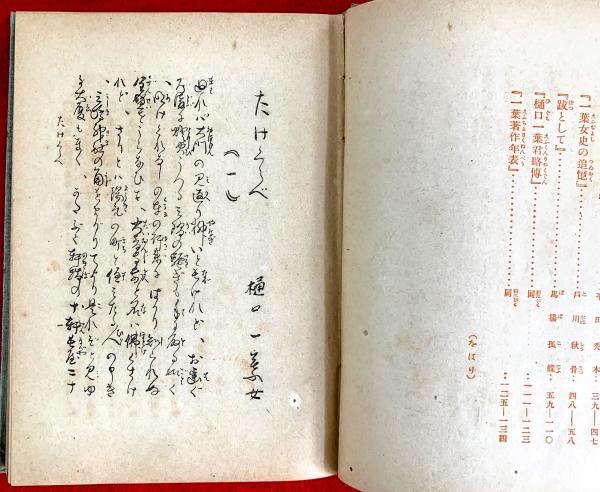 田禿木：三九―四七
『一葉女史の追憶』…………戸川秋骨：四八―五八
『跋として』…………馬場孤蝶：五九―一一〇
『樋口一葉君略傳』…………同…………一一一―一二三
『一葉著作年表』…………同…………一二五―一三四
(をはり)
たけくらべ
(一)
樋口一葉女
廻れば大門の見返り柳いと長けれど、お歯ぐ
ろ溝に燈火うつる三階の騒ぎも手に取る如く
、明けくれなしの車の行来にはかり知られぬ
全盛をうらなひて、大音寺前と名は佛くさけ
れど、さりとは陽気の町と住みたる人の申き
、三嶋神社の角をまがりてより是れぞと見ゆ
る大厦もなく、かたぶく軒端の十軒長屋二十
たけくらべ
一